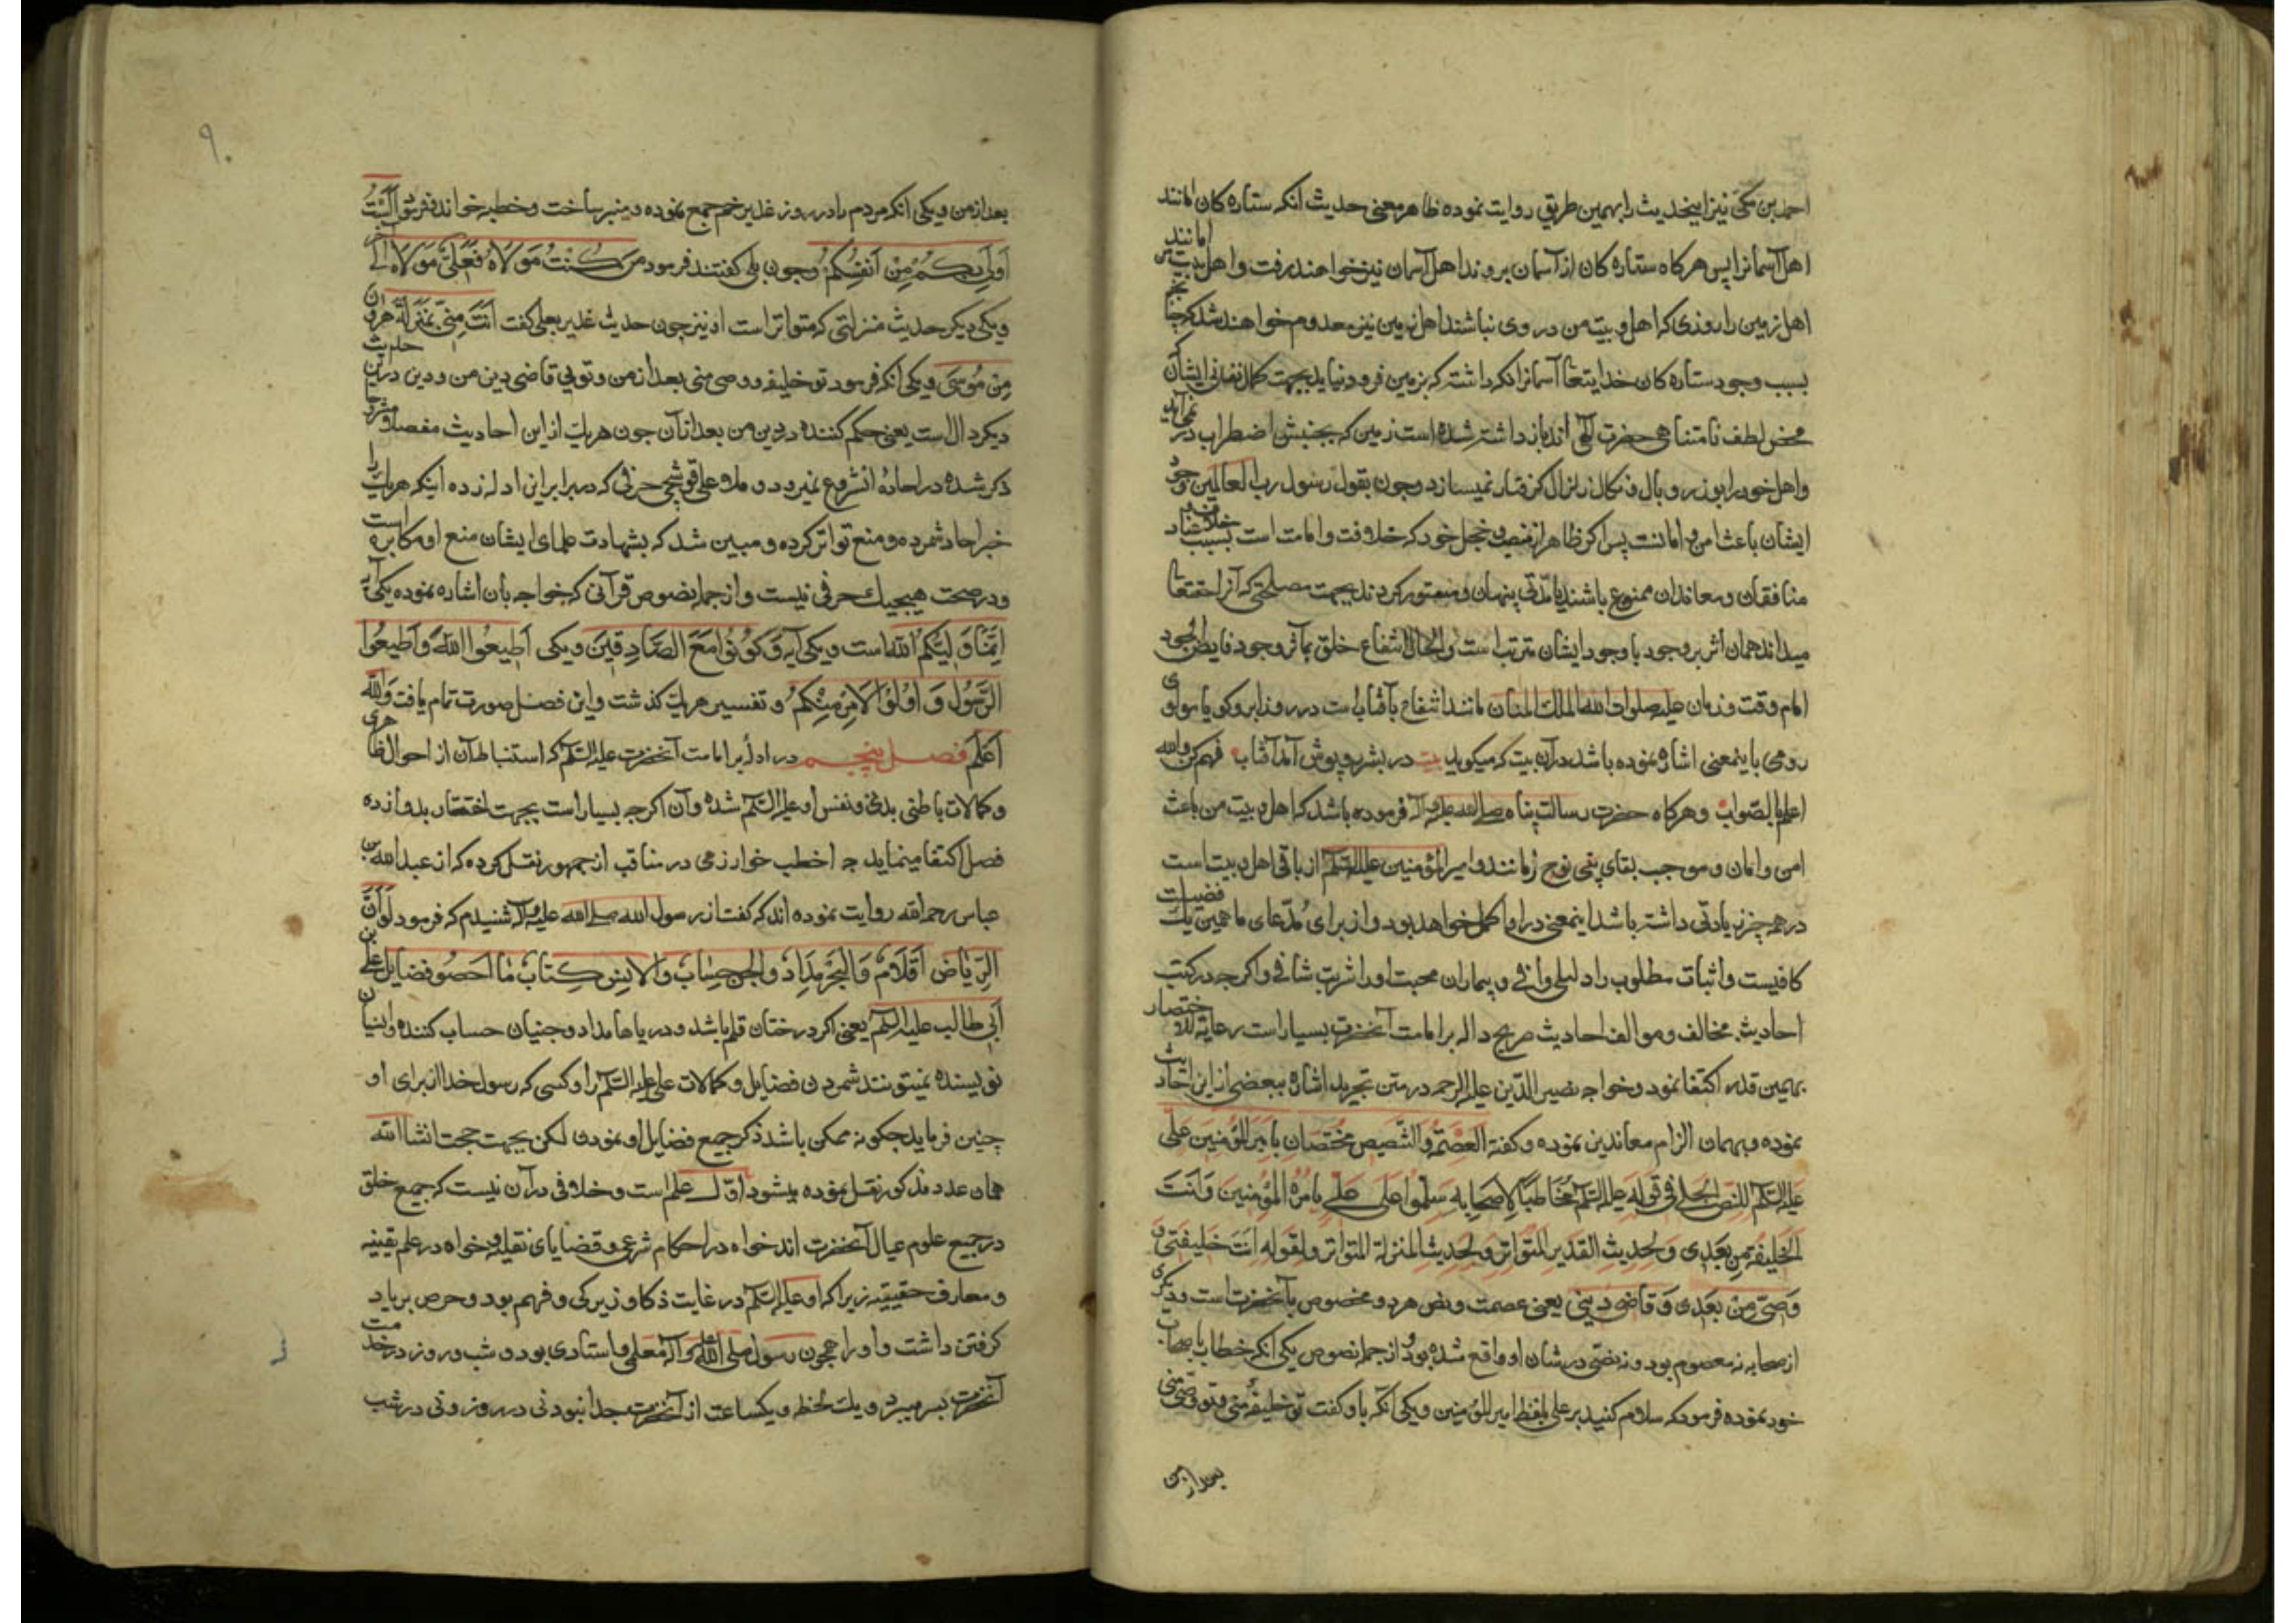 احمد بن مکی نیز اینحدیث را بهمین طریق روایت نموده ظاهر معنی حدیث آنکه ستاره کان امانند
اهل آسمانرا پس هرکاه ستاره کان از آسمان بروند اهل آسمان نیز خواهند رفت و اهل بیت من امانند
اهل زمین را روزی که اهل بیت من در وی نباشند اهل زمین نیز معدوم خواهند شد که چنانچه
بسبب وجود ستاره کان خدایتعا آسمانرا نکه داشته که بزمین فرود نیاید بجهت کمال نفسانی ایشان که
محض لطف نامتناهی حضرت الهی اند باز داشته شده است زمین که بجنبش اضطراب در نمی آید
و اهل خود را بوزر و بال و نکال زلزال کرفتار نمیسازد و چون بقول رسول رب العالمین وجود
ایشان باعث امن و امانست پس اکر ظاهر از منصب خود که خلافت و امامت است بسبب عناد
منافقان و معاندان ممنوع باشند یا مدتی پنهان و مستور کردند بجهت مصلحتی که آنرا حقتعا
میداند همان اثر بر وجود با وجود ایشان مترتب است و الحال انتفاع خلق بمآثر وجود فایض الجود
امام وقت و زمان علیه صلوات الله الملک المنان مانند انتفاع بآفتابست در روز ابر و کویا مولوی
رومی باینمعنی اشاره نموده باشد در آن بیت که میکوید بیت در بشر روپوش آمد آفتاب فهم کن والله
اعلم بالصواب و هرکاه حضرت رسالت پناه صلی الله علیه و آله فرموده باشد که اهل بیت من باعث
امن و امان و موجب بقای بنی نوع زمانند و امیرالمؤمنین علیه السلم از باقی اهل بیت است
در هر چیز زیادتی داشته باشد اینمعنی در او اکمل خواهد بود و از برای مدعای ما همین یک فضیلت
کافیست و اثبات مطلوب را دلیلی وافی و بیماران محبت او را شربت شافی و اکرچه در کتب
احادیث مخالف و موالف احادیث صریح دال بر امامت آنحضرت بسیار است رعایة للاختصار
بهمین قدر اکتفا نمود و خواجه نصیر الدین علیه الرحمه در متن تجرید اشاره ببعضی از این احادیث
نموده و بهمان الزام معاندین نموده و کفته العصمة و التنصیص مختصان بامیرالمؤمنین علی
علیه السلم للنص الجلی فی قوله علیه السلم مخاطبا لاصحابه سلموا علی علی بامرة المؤمنین و انت
الخلیفة من بعدی و لحدیث الغدیر المتواتر و لحدیث المنزلة المتواتر و لقوله انت خلیفتی و
وصیی من بعدی و قاضی دینی یعنی عصمت و نص هر دو مخصوص بآنحضرتست و دیکری
از صحابه نه معصوم بود و نه نصی در شان او واقع شده بود و از جمله نصوص یکی آنکه خطاب باصحاب
خود نموده فرمود که سلام کنید بر علی بلفظ امیر المؤمنین و یکی آنکه باو کفت تو خلیفه منی و تو وصی منی
بعد از من
۹۰
بعد از من و یکی آنکه مردم را در روز غدیر خم جمع نموده و منبر ساخت و خطبه خواند فرمود الست
اولی بکم من انفسکم و چون بلی کفتند فرمود من کنت مولاه فعلی مولاه الی آخر
و یکی دیکر حدیث منزلتی که متواتر است او نیز چون حدیث غدیر بعلی کفت انت منی بمنزلة هرون
من موسی و یکی آنکه فرمود تو خلیفه و وصی منی بعد از من و تویی قاضی دین من و دین در این حدیث
بکسر دال است یعنی حکم کننده در دین من بعد از آن چون هریک از این احادیث مفصلا و مشروحا
ذکر شده در اعاده آن شروع نمیرود و ملا علی قوشچی حرفی که در برابر این ادله زده اینکه هریک را
خبر احاد شمرده و منع تواتر کرده و مبین شد که بشهادت علمای ایشان منع او مکابره است
و در صحت هیچیک حرفی نیست و از جمله نصوص قرآنی که خواجه بان اشاره نموده یکی آیه
انما ولیکم الله است و یکی آیه و کونوا مع الصادقین و یکی اطیعوا الله و اطیعوا
الرسول و اولو الامر منکم و تفسیر هریک کذشت و این فصل صورت تمام یافت والله
اعلم فصل پنجم در ادله بر امامت آنحضرت علیه السلم که استنباط آن از احوال ظاهری
و کمالات باطنی بدنی و نفس او علیه السلم شده و آن اکرچه بسیار است بجهت اختصار بدوازده
فصل اکتفا مینماید چه اخطب خوارزمی در مناقب از جمهور نقل کرده که از عبدالله بن
عباس رحمه الله روایت نموده اند که کفت از رسول الله صلی الله علیه و آله شنیدم که فرمود لو ان
الریاض اقلام و البحر مداد و الجن حساب و الانس کتاب ما احصوا فضایل علی بن
ابی طالب علیه السلم یعنی اکر درختان قلم باشد و دریاها مداد و جنیان حساب کننده و انسیان
نویسنده نمیتونند شمردن فضایل و کمالات علی علیه السلم را و کسی که رسول خدا از برای او
چنین فرماید چکونه ممکن باشد ذکر جمیع فضایل او نمودن لکن بجهت حجت انشاالله
همان عدد مذکور نقل نموده میشود اول علم است و خلافی در آن نیست که جمیع خلق
در جمیع علوم عیال آنحضرت اند خواه در احکام شرعی و قضایای نقلیه و خواه در علم یقینیه
و معارف حقیقیه زیرا که او علیه السلم در غایت ذکا و زیرکی و فهم بود و حرص بر یاد
کرفتن داشت و او را همچون رسول صلی الله علیه و آله معلمی و استادی بود و شب و روز در خدمت
آنحضرت بسر میبرد و یک لحظه و یکساعت از آنحضرت جدا نبود نی در روز و نی در شب